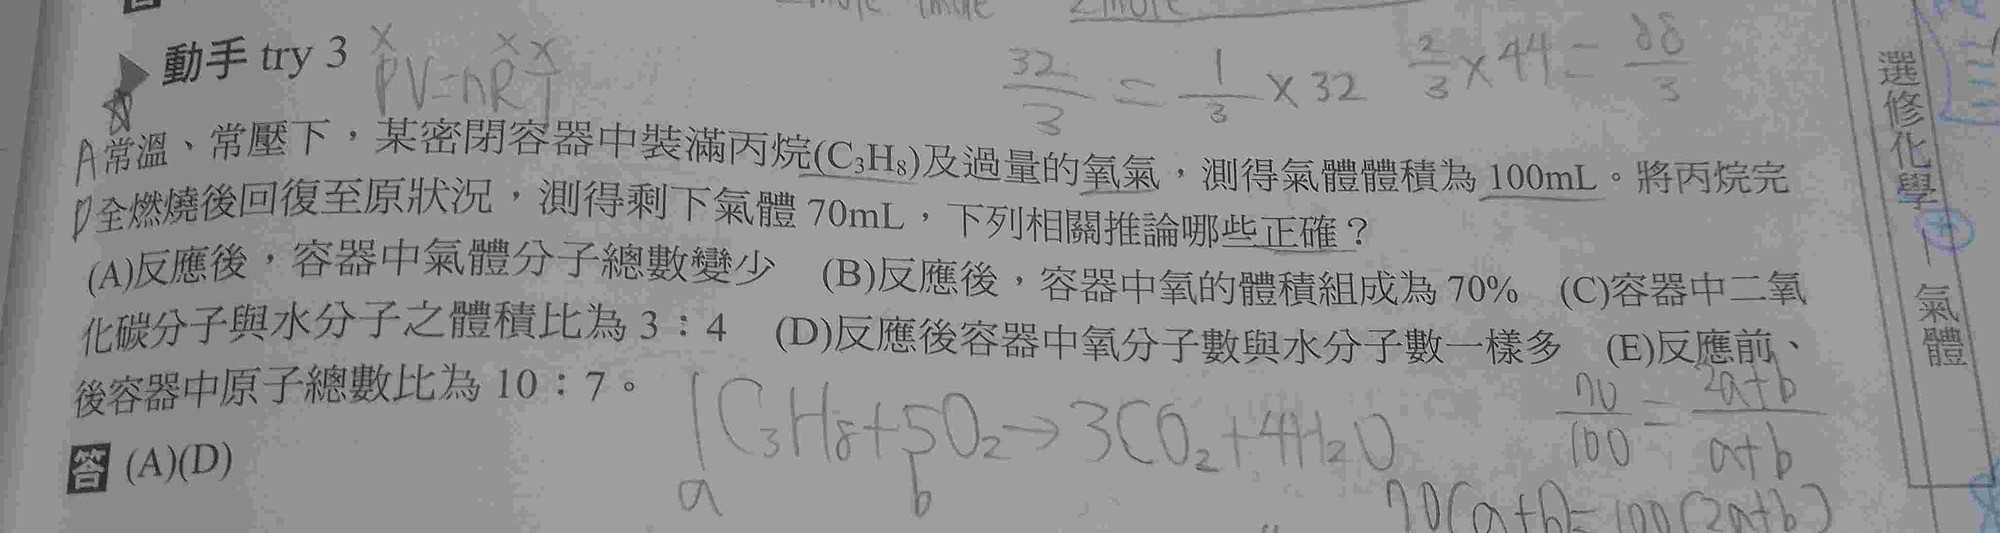 動手 try 3
PV=nRT
32/3 = 1/3 × 32
2/3 × 44 = 88/3
常溫、常壓下，某密閉容器中裝滿丙烷(C₃H₈)及過量的氧氣，測得氣體體積為 100mL。將丙烷完
全燃燒後回復至原狀況，測得剩下氣體 70mL，下列相關推論哪些正確？
(A)反應後，容器中氣體分子總數變少 (B)反應後，容器中氧的體積組成為 70% (C)容器中二氧
化碳分子與水分子之體積比為 3：4 (D)反應後容器中氧分子數與水分子數一樣多 (E)反應前、
後容器中原子總數比為 10：7。
答 (A)(D)
A
D
1C₃H₈+5O₂→3CO₂+4H₂O
a b
70/100 = 2a+b/a+b
70(a+b)=100(2a+b)
選修化學
氣體